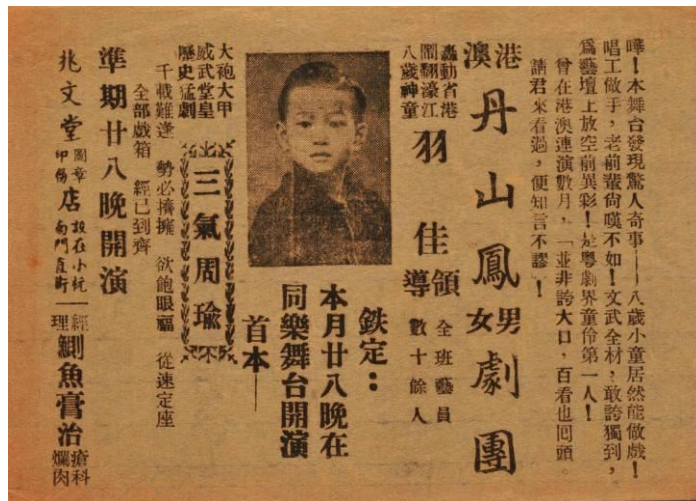 嘩！本舞台發現驚人奇事——八歲小童居然能做戲！
唱工做手，老前輩尙嘆不如！文武全材，敢誇獨到，
爲藝壇上放空前異彩！是粵劇界童伶第一人！
曾在港澳連演數月，「並非誇大口，百看也囘頭。
請君來看過，便知言不謬」！
港澳
丹山鳳
男女
劇團
轟動省港
鬧翻濠江
八歲神童
羽佳
領導
全班藝員
數十餘人
鉄定：
本月廿八晚在
同樂舞台開演
首本——
大袍大甲
威武堂皇
歷史猛劇
三氣周瑜
千載難逢 勢必擠擁 欲飽眼福 從速定座
全部戲箱 經已到齊
準期廿八晚開演
兆文堂
圖章
印務
店
設在小杬
南門直街
經理
鰂魚膏治
瘡科
爛肉